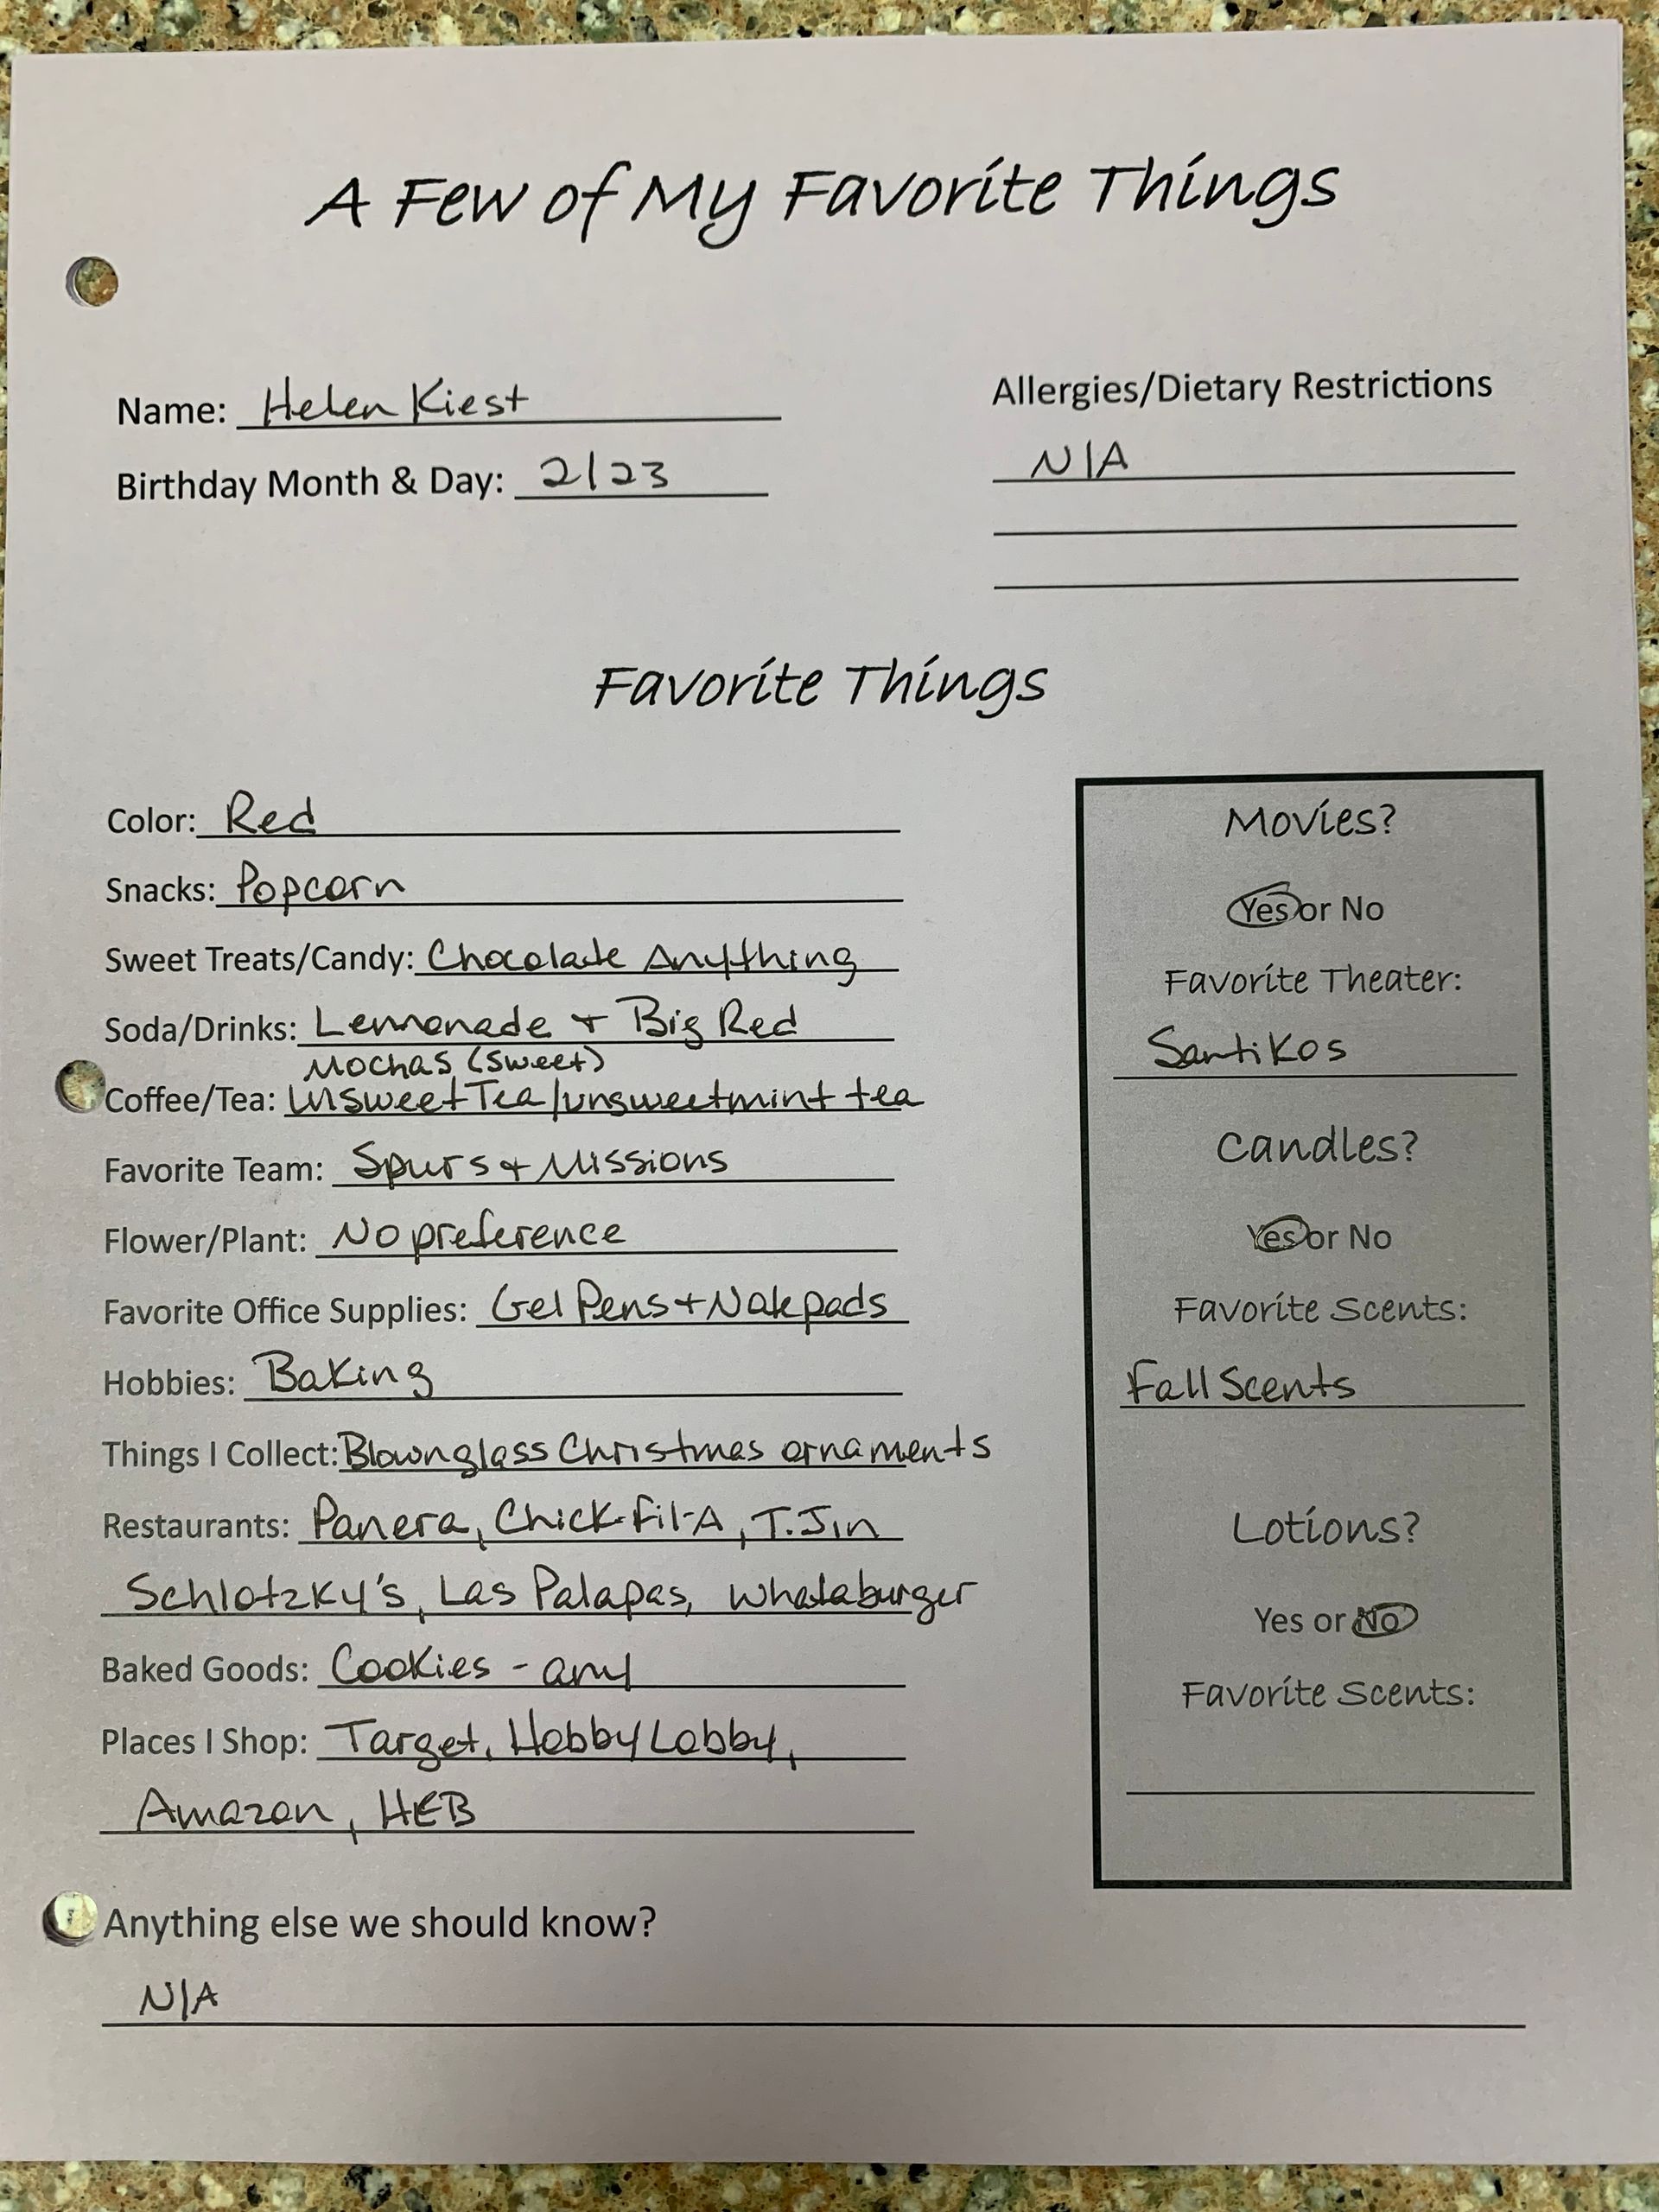 A Few of My Favorite Things
Name: Helen Kiest
Birthday Month & Day: 2/23
Allergies/Dietary Restrictions
N/A
Favorite Things
Color: Red
Snacks: Popcorn
Sweet Treats/Candy: Chocolate Anything
Soda/Drinks: Lemonade + Big Red
Mochas (sweet)
Coffee/Tea: Unsweet Tea/unsweet mint tea
Favorite Team: Spurs + Missions
Flower/Plant: No preference
Favorite Office Supplies: Gel Pens + Notepads
Hobbies: Baking
Things I Collect: Blownglass Christmas ornaments
Restaurants: Panera, Chick-fil-A, T. Jin
Schlotzky's, Las Palapas, Whataburger
Baked Goods: Cookies - any
Places I Shop: Target, Hobby Lobby,
Amazon, HEB
Movies?
Yes or No
Favorite Theater:
Santikos
Candles?
Yes or No
Favorite Scents:
Fall Scents
Lotions?
Yes or No
Favorite Scents:
Anything else we should know?
N/A